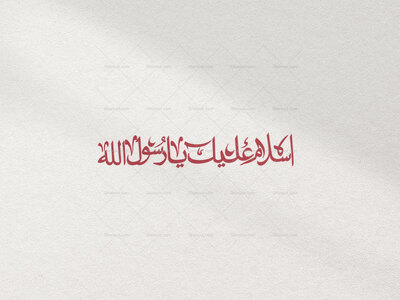 السلام علیک یا رسول الله